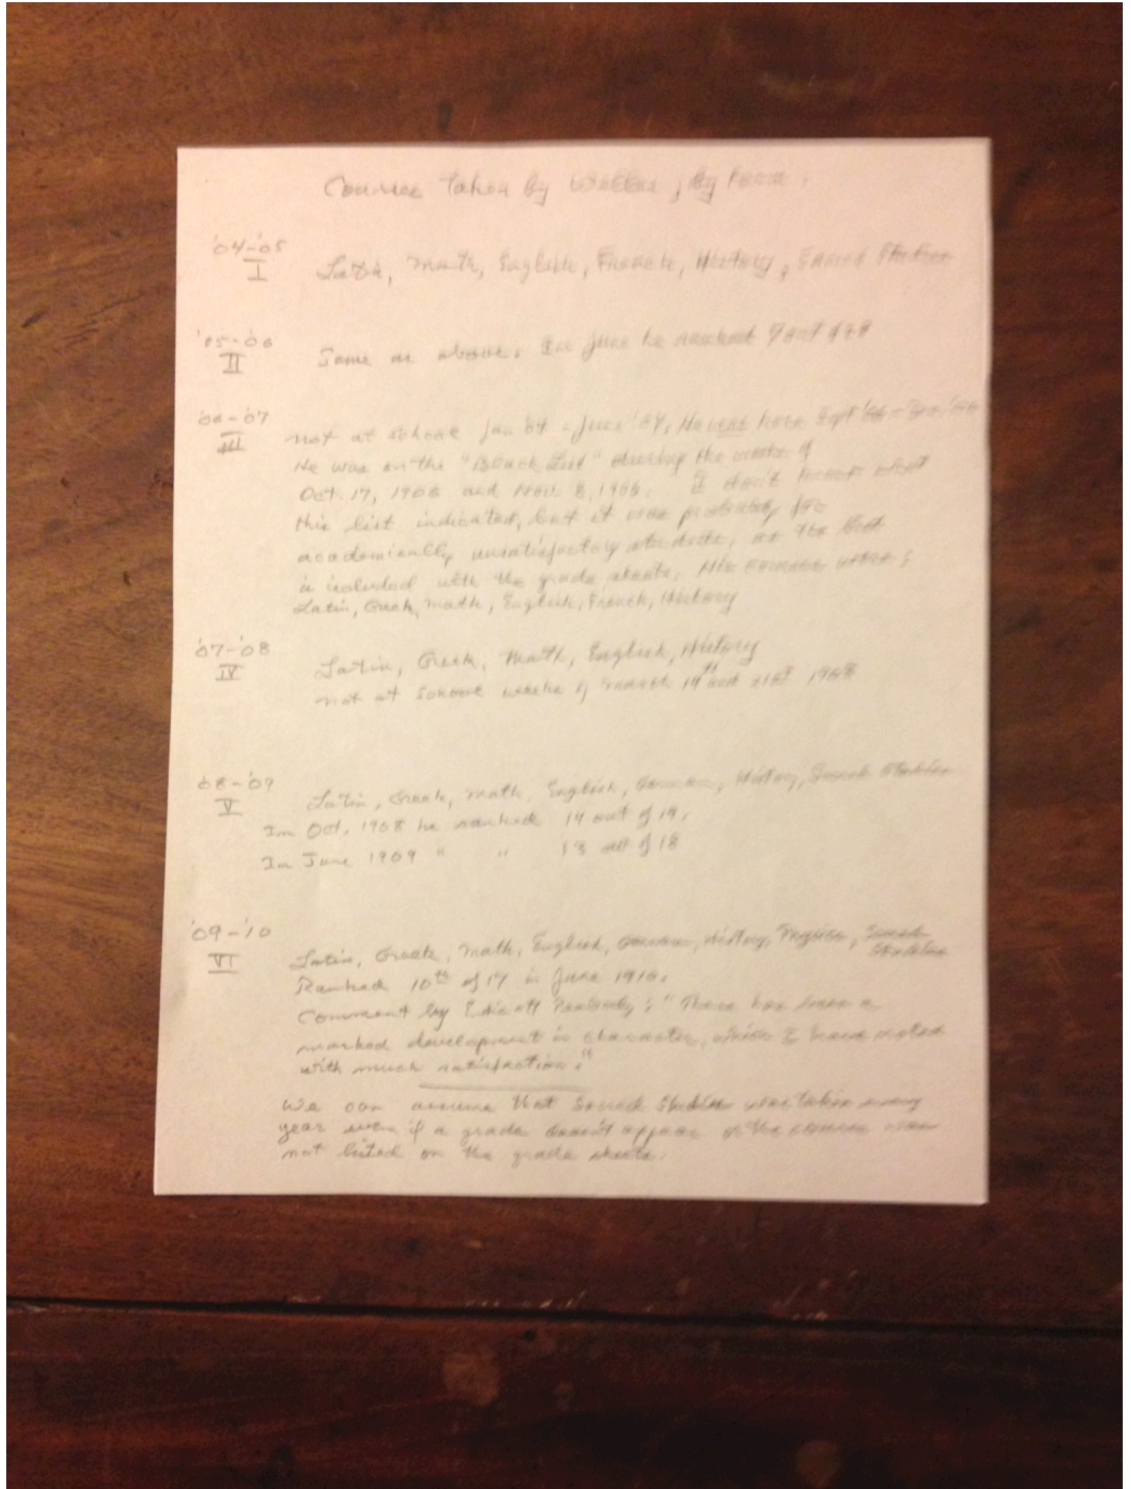 Courses taken by Welles, by Form.
'04-'05
I
Latin, Math, English, French, History, Sacred Studies
'05-'06
II
Same as above. In June he ranked out of
'06-'07
III
not at school Jan '07 - June '07. He was here Sept '06 - Dec. '06
He was on the "Black List" during the weeks of
Oct. 17, 1906 and Nov. 8, 1906. I don't know what
this list indicated, but it was probably for
academically unsatisfactory students, as the list
is included with the grade sheets. His courses were:
Latin, Greek, Math, English, French, History
'07-'08
IV
Latin, Greek, Math, English, History
not at school weeks of March 14th and 21st 1908
'08-'09
V
Latin, Greek, Math, English, German, History, Sacred Studies
In Oct. 1908 he ranked 14 out of 19.
In June 1909 " " 13 out of 18
'09-'10
VI
Latin, Greek, Math, English, German, History, Physics, Sacred
Studies
Ranked 10th of 17 in June 1910.
Comment by Endicott Peabody: "There has been a
marked development in character, which I have noted
with much satisfaction."
We can assume that Sacred Studies was taken every
year even if a grade doesn't appear or the course was
not listed on the grade sheets.